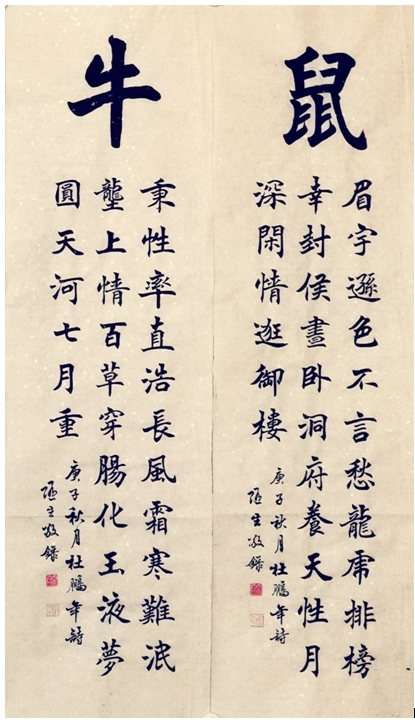 鼠
眉宇遜色不言愁龍虎排榜
幸封侯晝卧洞府養天性月
深閑情逛御樓
庚子秋月杜鵬年詩
張生敬錄
牛
秉性率直浩長風霜寒難泯
壟上情百草穿腸化玉液夢
圓天河七月重
庚子秋月杜鵬年詩
張生敬錄